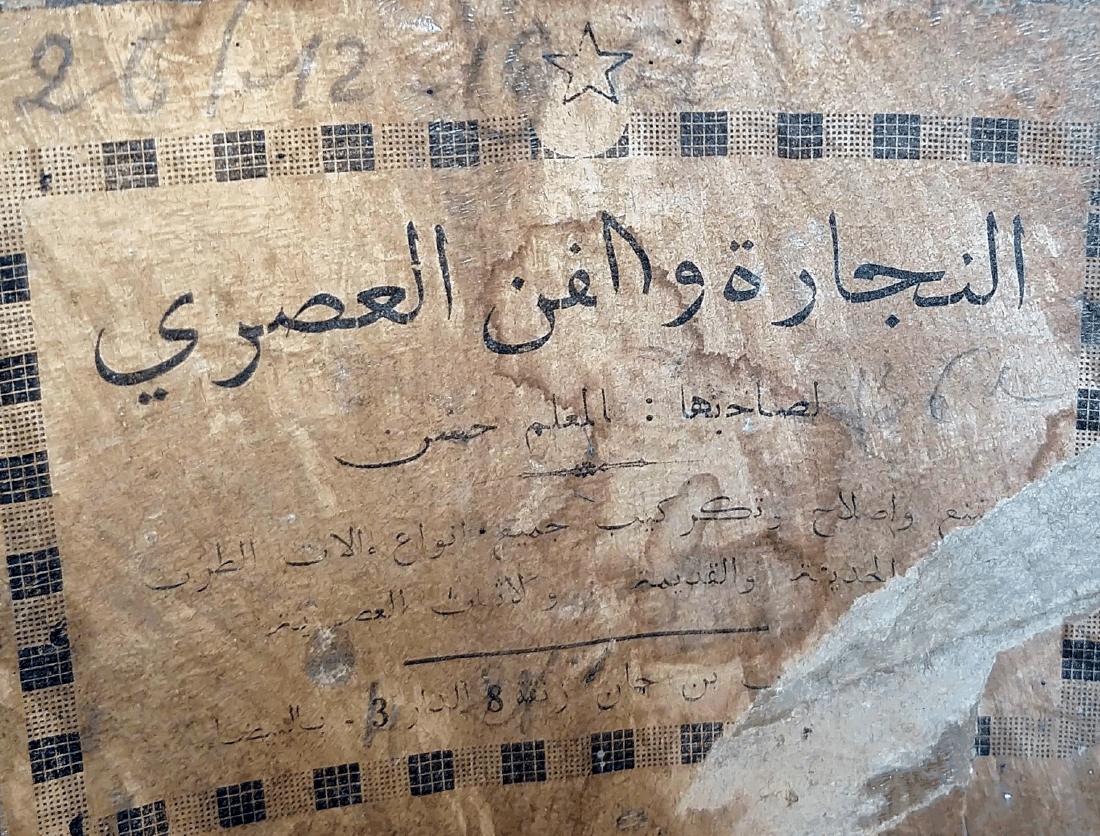 26/12
النجارة والفن العصري
لصاحبها : المعلم حسن
واصلاح وتكركيب جميع انواع ءالات الطرب
الحديثة والقديمة و لاثاث العصرية
بن جان زنقة 8 الدار 3 -